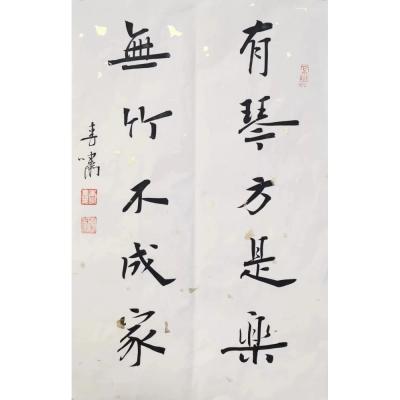 有琴方是樂
無竹不成家
春嘯